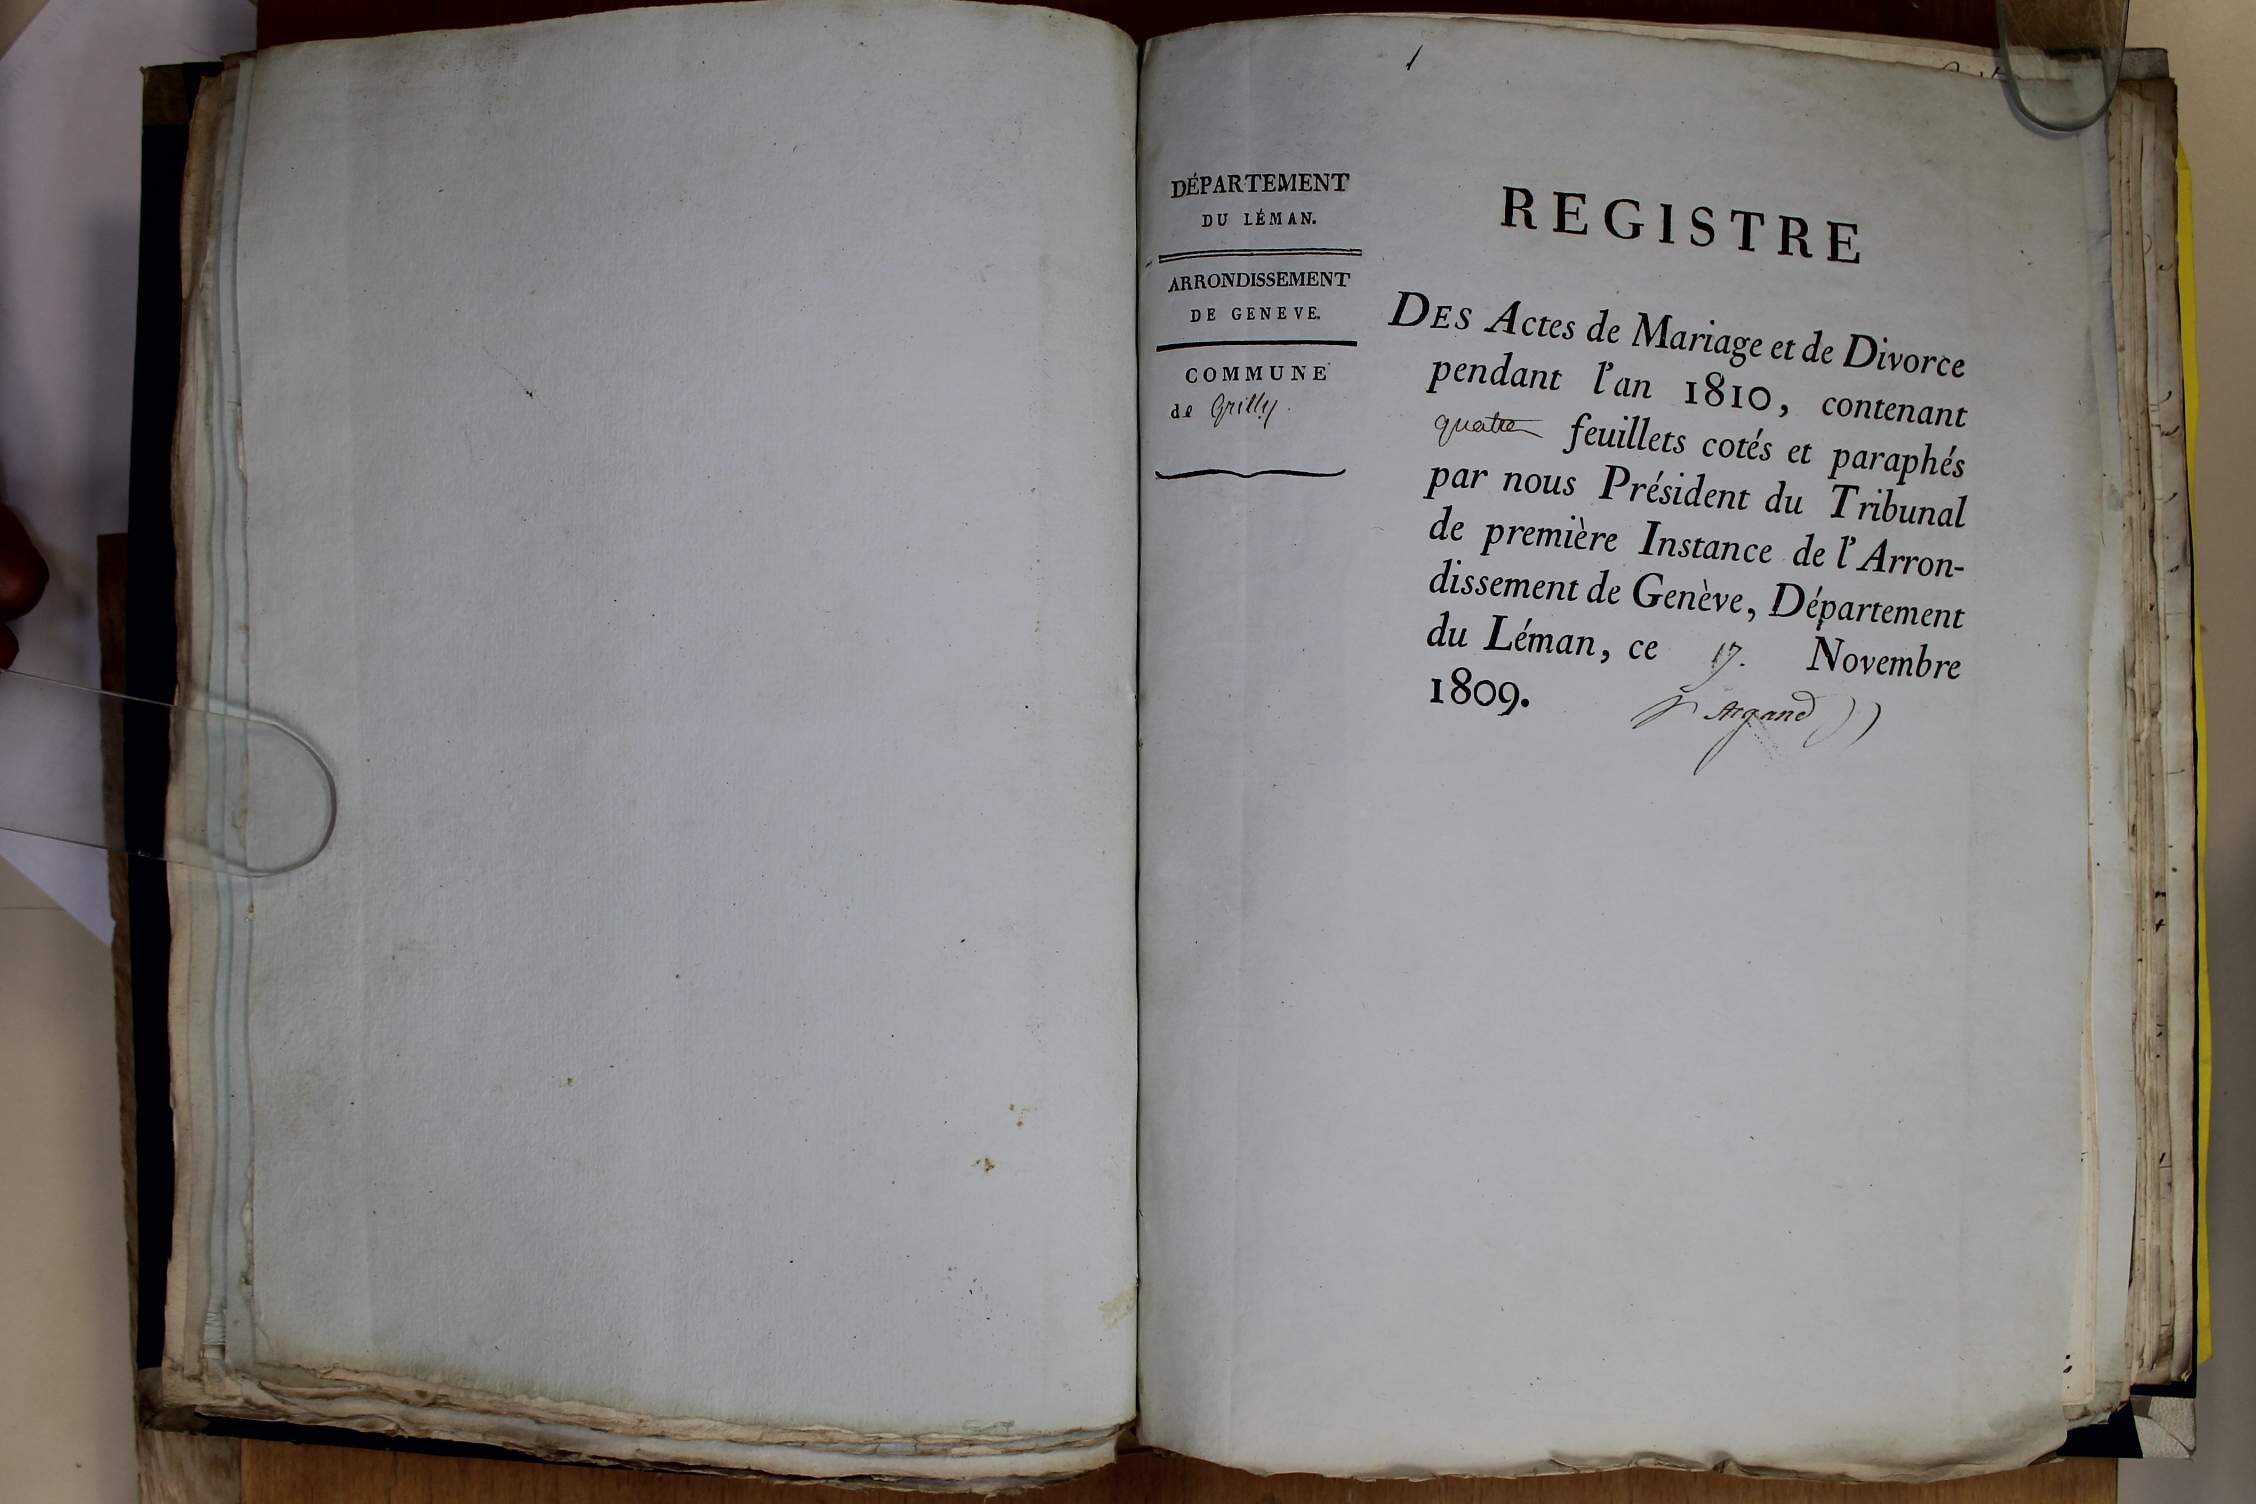 1
DÉPARTEMENT
DU LÉMAN.
ARRONDISSEMENT
DE GENEVE.
COMMUNE
de Grilly.
REGISTRE
DES Actes de Mariage et de Divorce
pendant l'an 1810, contenant
quatre feuillets cotés et paraphés
par nous Président du Tribunal
de première Instance de l'Arron-
dissement de Genève, Département
du Léman, ce 17. Novembre
1809.
Argand